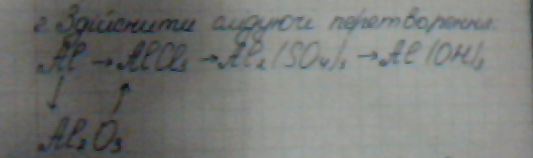 2. Здійснити слідуючі перетворення:
Al → AlCl₃ → Al₂(SO₄)₃ → Al(OH)₃
↓ ↑
Al₂O₃